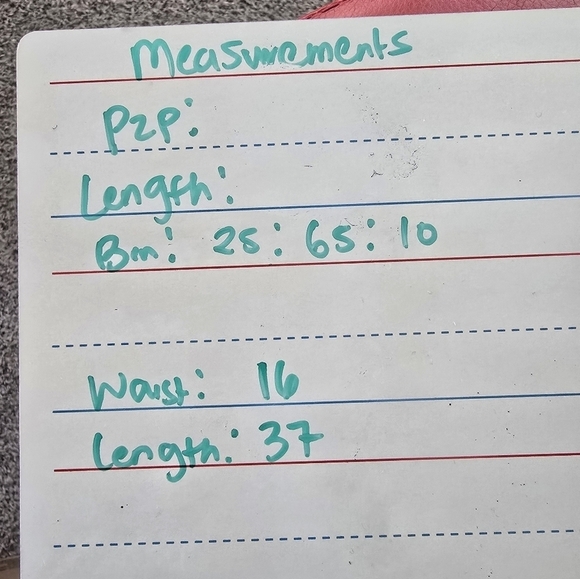 Measurements
P2P:
Length:
Bm: 25: 65: 10
Waist: 16
Length: 37